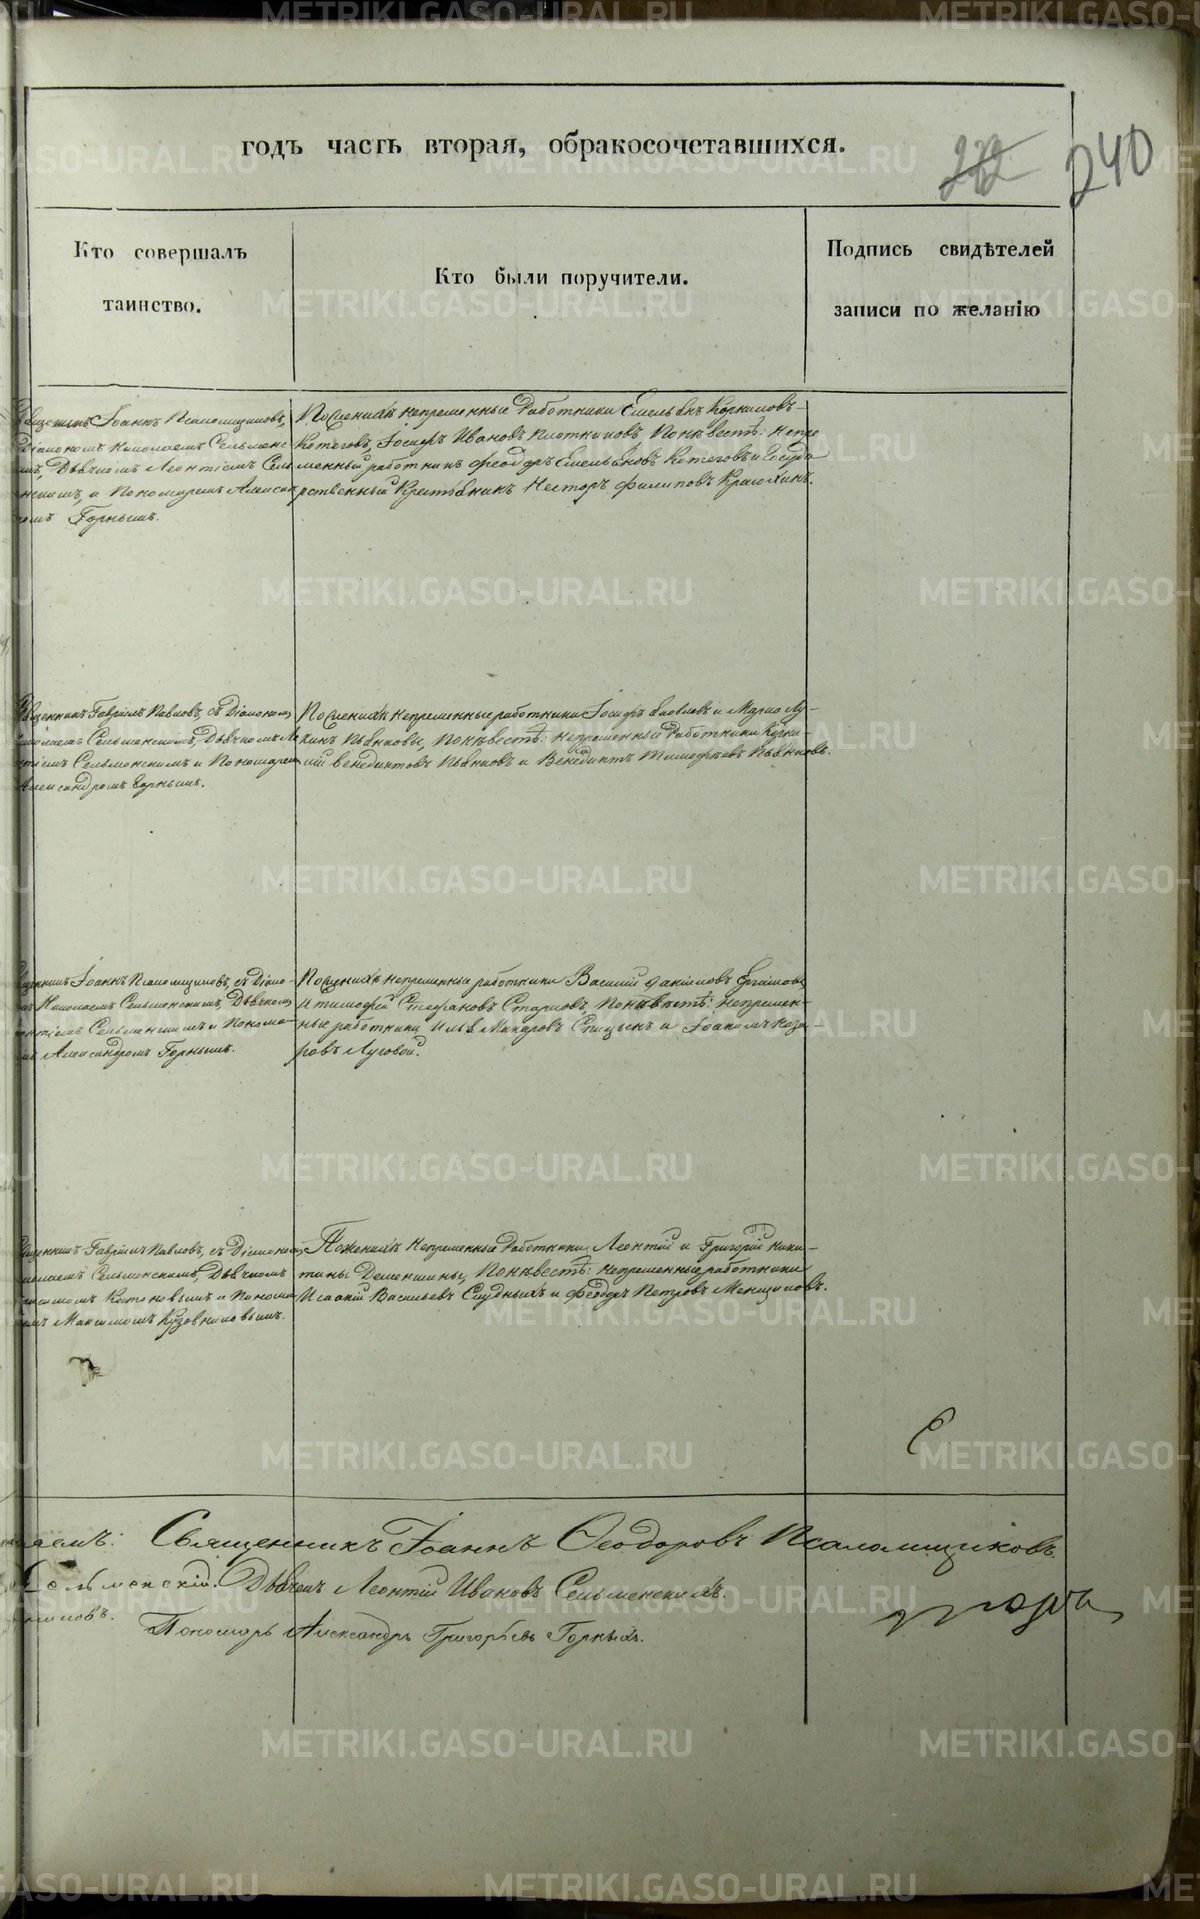 годъ часть вторая, обракосочетавшихся.
240
Кто совершалъ
таинство.
Кто были поручители.
Подпись свидѣтелей
записи по желанію
Іоаннъ Псаломщиковъ,
Діакономъ Николаемъ Сельменс
Дьячкомъ Леонтіемъ Сель
и Пономаремъ Алексан
Горнымъ.
По женихѣ непременные работники Емельянъ Корниловъ
Котеговъ, Іосифъ Ивановъ Плотниковъ, По невестѣ: Непре
менный работникъ Феодоръ Емельяновъ Котеговъ и Госуда
рственный Крестьянинъ Несторъ Филиповъ
Гавріилъ Павловъ, съ Діакономъ
Сельменскимъ, Дьячкомъ Ле
Сельменскимъ и Пономаремъ
Александромъ Горнымъ.
По женихѣ непременные работники Іосифъ Яковлевъ и Марко Лу-
кинъ Пьянковы, По невестѣ: непременные работники Корни-
лій Венедиктовъ Пьянковъ и Венедиктъ Тимофѣевъ Пьянковъ.
Іоаннъ Псаломщиковъ, съ Діако-
Николаемъ Сельменскимъ, Дьячкомъ
Сельменскимъ и Понома-
Александромъ Горнымъ.
По женихѣ непременные работники Василій
и Тимофей Стефановъ Стариковъ, По невестѣ: Непремен-
ные работники Илья Макаровъ Спицынъ и Іоакимъ Наза-
ровъ Луговой.
Гавріилъ Павловъ, съ Діакономъ
Сельменскимъ, Дьячкомъ
и Понома
Максимомъ Кузовниковымъ.
По женихѣ Непременные Работники Леонтій и Григорій Ники-
тины Деменшины, По невестѣ: непременные работники
Исаакій Васильевъ Слудныхъ и Феодоръ Петровъ Менщиковъ.
Священникъ Іоаннъ Ѳеодоровъ Псаломщиковъ.
Сельменскій. Дьячекъ Леонтій Ивановъ Сельменскихъ.
Пономарь Александръ Григорьевъ Горныхъ.
METRIKI.GASO-URAL.RU